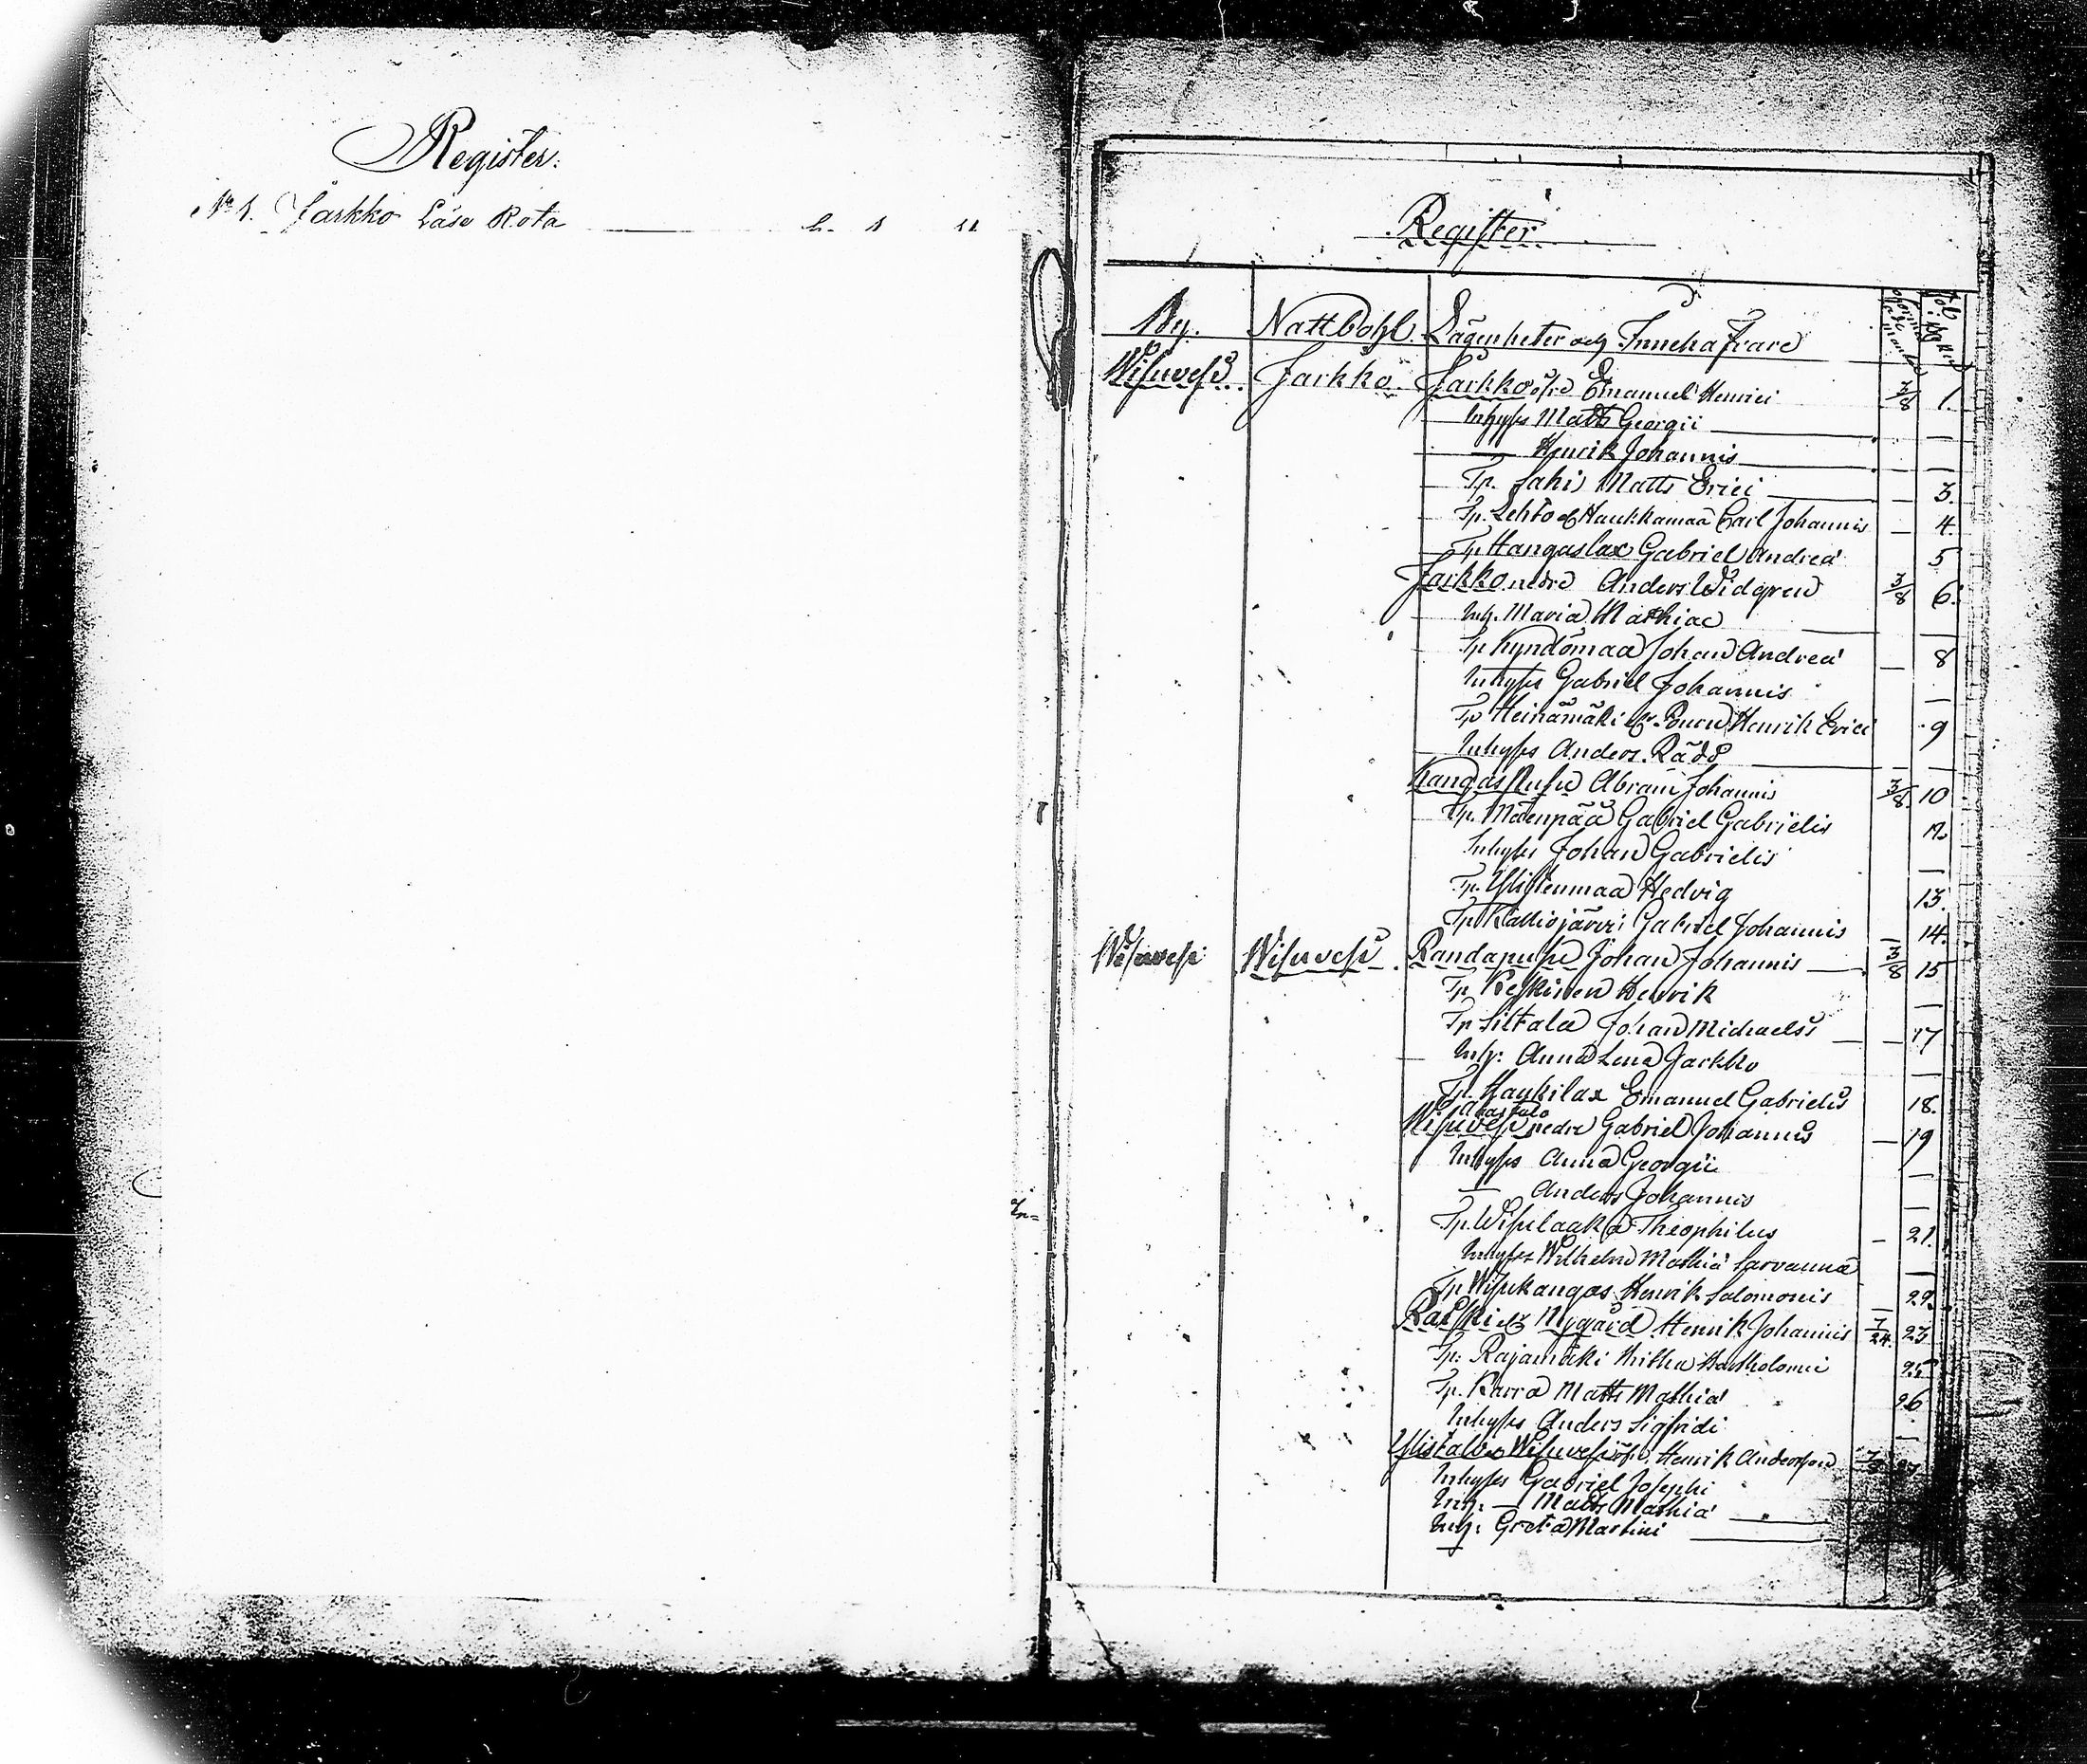 Register.
No 1. Jarkko Läse Rota
Register.
By. Nattbohl. Lägenheter och Innehafvare
Wisuvesi. Jarkko. Jarkko öfre Emanuel Henrici 3/8 1.
Inhyses Matts Georgii — —
— Henrik Johannis — —
Tp. Lahis Matts Erici — — 3.
Tp. Lehto el. Haukkamaa Carl Johannis — 4.
Tp. Hangaslax Gabriel Andreæ 5
Jarkko nedre Anders Widgren 3/8 6.
Inh. Maria Mathiae — —
Tp. Kyndömaa Johan Andreæ — 8
Inhyses Gabriel Johannis —
Tp. Heinämäki el. Henrik Erici 9
Inhyses Anders Rädd — —
Kangas Abram Johannis 3/8. 10
Tp. Mäenpää Gabriel Gabrielis 12
Inhyses Johan Gabrielis —
Tp. Ylistenmaa Hedvig 13.
Tp. Kalliojärvi Gabriel Johannis — 14.
Wisuvesi Wisuvesi. Randapusu Johan Johannis — 3/8 15
Tp. Keskinen Henrik —
Tp. Siltala Johan Michaelis — — 17
Inh: Anna Lena Jarkko —
Tp. Haukilax Emanuel Gabrielis 18.
Wisuvesi nedre Gabriel Johannis — 19
Inhyses Anna Georgii —
— Anders Johannis —
Tp. Wisulaaka Theophilus — 21.
Inhyses Wilhelm Mathiæ —
Tp. Wisukangas Henrik Salomonis 22.
Raiski el. Nygård Henrik Johannis 7/24. 23
Tp: Rajamäki 25
Tp. Karra Matts Mathiæ 26
Inhyses Anders Sigfridi —
Ylistalo Wisuvesi öfre Henrik Andersson 27
Inhyses Gabriel Josephi
Inh. — Matts Mathiæ —
Inh: Greta Martini —